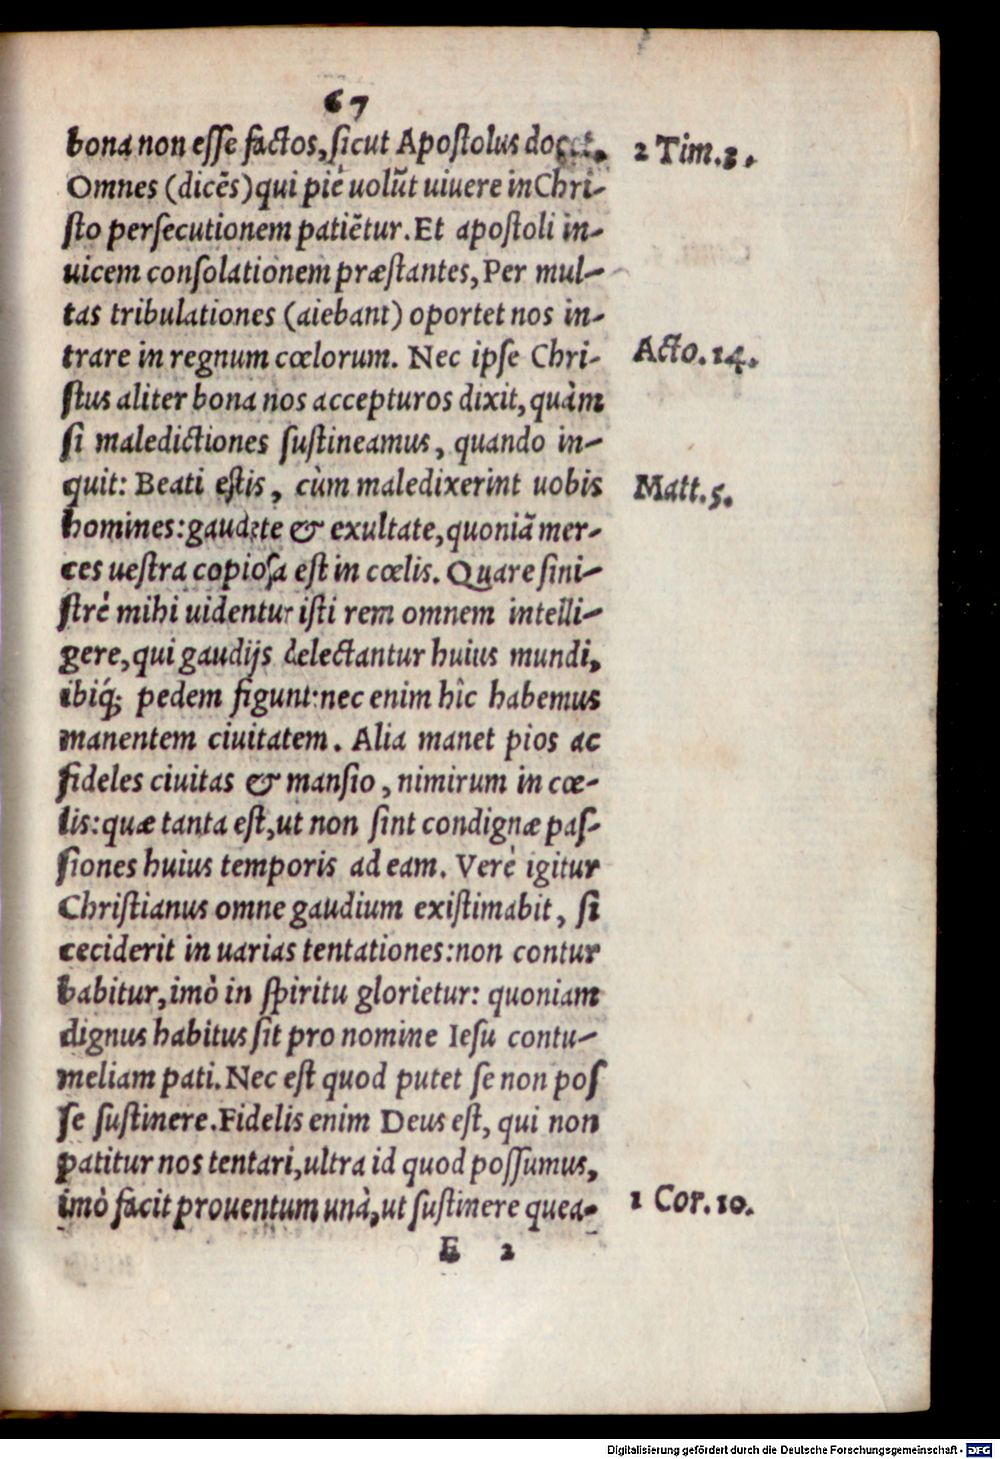 67
bona non esse factos, sicut Apostolus docet. 2 Tim. 3.
Omnes (dicẽs) qui piè uolũt uiuere in Chri-
sto persecutionem patiẽtur. Et apostoli in-
uicem consolationem præstantes, Per mul-
tas tribulationes (aiebant) oportet nos in-
trare in regnum cœlorum. Nec ipse Chri- Acto. 14.
stus aliter bona nos accepturos dixit, quàm
si maledictiones sustineamus, quando in-
quit: Beati estis, cùm maledixerint uobis Matt. 5.
homines: gaudete & exultate, quoniã mer-
ces uestra copiosa est in cœlis. Quare sini-
strè mihi uidentur isti rem omnem intelli-
gere, qui gaudijs delectantur huius mundi,
ibiq́; pedem figunt: nec enim hîc habemus
manentem ciuitatem. Alia manet pios ac
fideles ciuitas & mansio, nimirum in cœ-
lis: quæ tanta est, ut non sint condignæ pas-
siones huius temporis ad eam. Verè igitur
Christianus omne gaudium existimabit, si
ceciderit in uarias tentationes: non contur
babitur, imò in spiritu glorietur: quoniam
dignus habitus sit pro nomine Iesu contu-
meliam pati. Nec est quod putet se non pos
se sustinere. Fidelis enim Deus est, qui non
patitur nos tentari, ultra id quod possumus,
imò facit prouentum unà, ut sustinere quea- 1 Cor. 10.
E 2
Digitalisierung gefördert durch die Deutsche Forschungsgemeinschaft - DFG